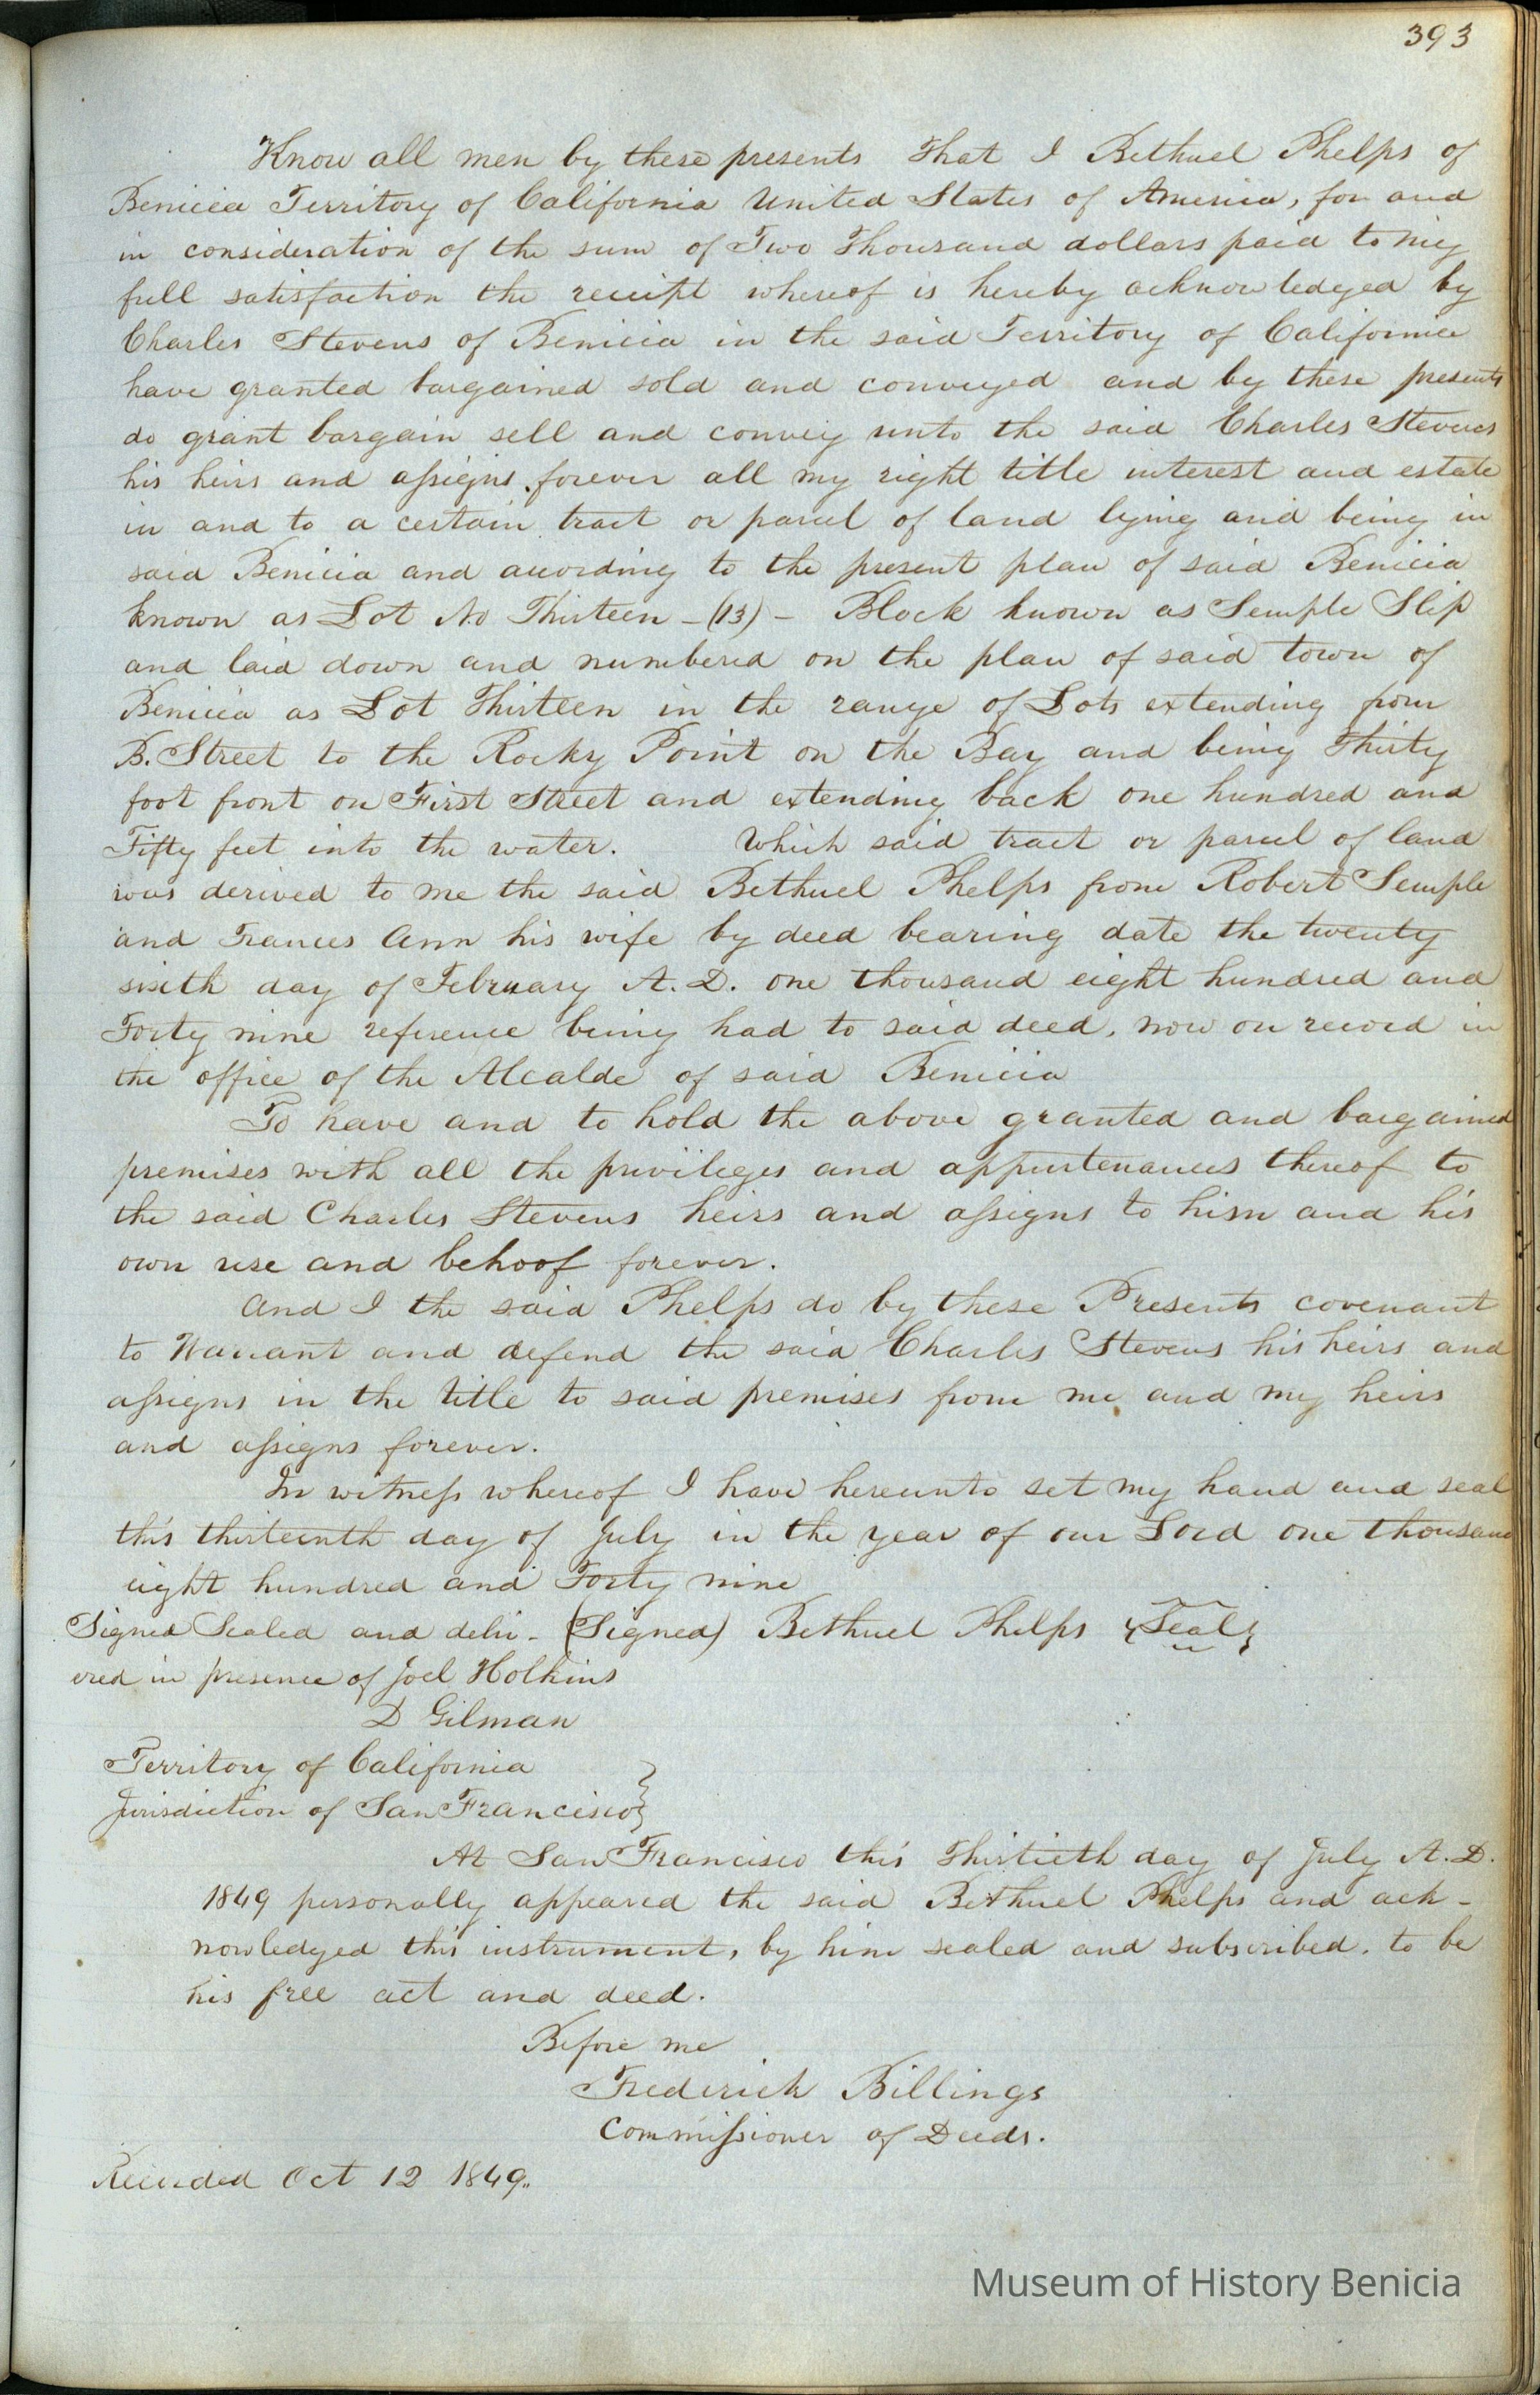 393
Know all men by these presents That I Bethuel Phelps of
Benicia Territory of California United States of America, for and
in consideration of the sum of Two Thousand dollars paid to my
full satisfaction the receipt whereof is hereby acknowledged by
Charles Stevens of Benicia in the said Territory of California
have granted bargained sold and conveyed and by these presents
do grant bargain sell and convey unto the said Charles Stevens
his heirs and assigns forever all my right title interest and estate
in and to a certain tract or parcel of land lying and being in
said Benicia and according to the present plan of said Benicia
known as Lot No Thirteen - (13) - Block known as Semple Slip
and laid down and numbered on the plan of said town of
Benicia as Lot Thirteen in the range of Lots extending from
B. Street to the Rocky Point on the Bay and being Thirty
foot front on First Street and extending back one hundred and
Fifty feet into the water. Which said tract or parcel of land
was derived to me the said Bethuel Phelps from Robert Semple
and Frances Ann his wife by deed bearing date the twenty
sixth day of February A. D. one thousand eight hundred and
Forty nine reference being had to said deed, now on record in
the office of the Alcalde of said Benicia
To have and to hold the above granted and bargained
premises with all the privileges and appurtenances thereof to
the said Charles Stevens heirs and assigns to him and his
own use and behoof forever.
And I the said Phelps do by these Presents covenant
to Warrant and defend the said Charles Stevens his heirs and
assigns in the title to said premises from me and my heirs
and assigns forever.
In witness whereof I have hereunto set my hand and seal
this thirteenth day of July in the year of our Lord one thousand
eight hundred and Forty nine
Signed Sealed and deliv- (Signed) Bethuel Phelps {Seal}
ered in presence of Joel Holkins
D Gilman
Territory of California }
Jurisdiction of San Francisco }
At San Francisco this Thirtieth day of July A. D.
1849 personally appeared the said Bethuel Phelps and ack-
nowledged this instrument, by him sealed and subscribed, to be
his free act and deed.
Before me
Frederick Billings
Commissioner of Deeds.
Recorded Oct 12 1849..
Museum of History Benicia